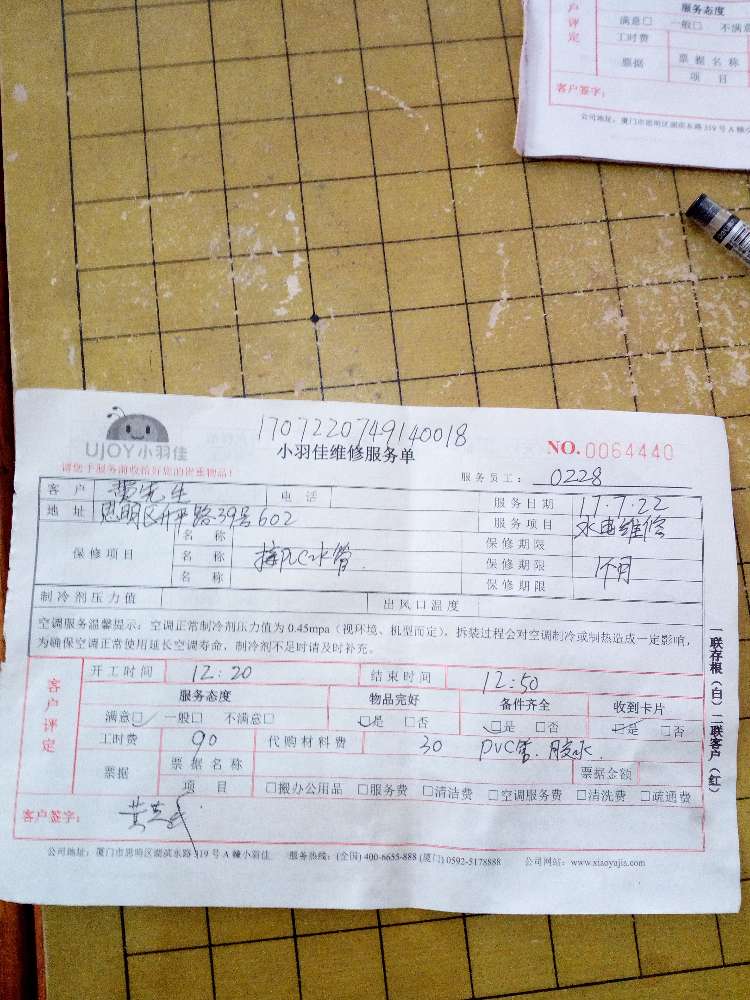 户评定
服务态度
满意□ 一般□ 不满意
工时费
票据 票据名称
项目
客户签字:
公司地址:厦门市思明区湖滨东路319号A幢小
1707220749140018
UJOY小羽佳
小羽佳维修服务单
NO.0064440
请您于服务前收拾好您的贵重物品!
服务员工: 0228
客户 黄先生 电话 服务日期 17.7.22
地址 思明区升平路39号602 服务项目 水电维修
保修项目 名称 保修期限
名称 接PVC水管 保修期限 1个月
名称 保修期限
制冷剂压力值 出风口温度
空调服务温馨提示:空调正常制冷剂压力值为0.45mpa(视环境、机型而定),拆装过程会对空调制冷或制热造成一定影响,
为确保空调正常使用延长空调寿命,制冷剂不足时请及时补充。
客户评定
开工时间 12:20 结束时间 12:50
服务态度 物品完好 备件齐全 收到卡片
满意□ 一般□ 不满意□ □是 □否 □是 □否 □是 □否
工时费 90 代购材料费 30 PVC管.胶水
票据 票据名称 票据金额
项目 □搬办公用品 □服务费 □清洁费 □空调服务费 □清洗费 □疏通费
客户签字:
公司地址:厦门市思明区湖滨东路319号A幢小羽佳 服务热线:(全国)400-6655-888 (厦门)0592-5178888 公司网站:www.xiaoyujia.com
一联存根(白)二联客户(红)